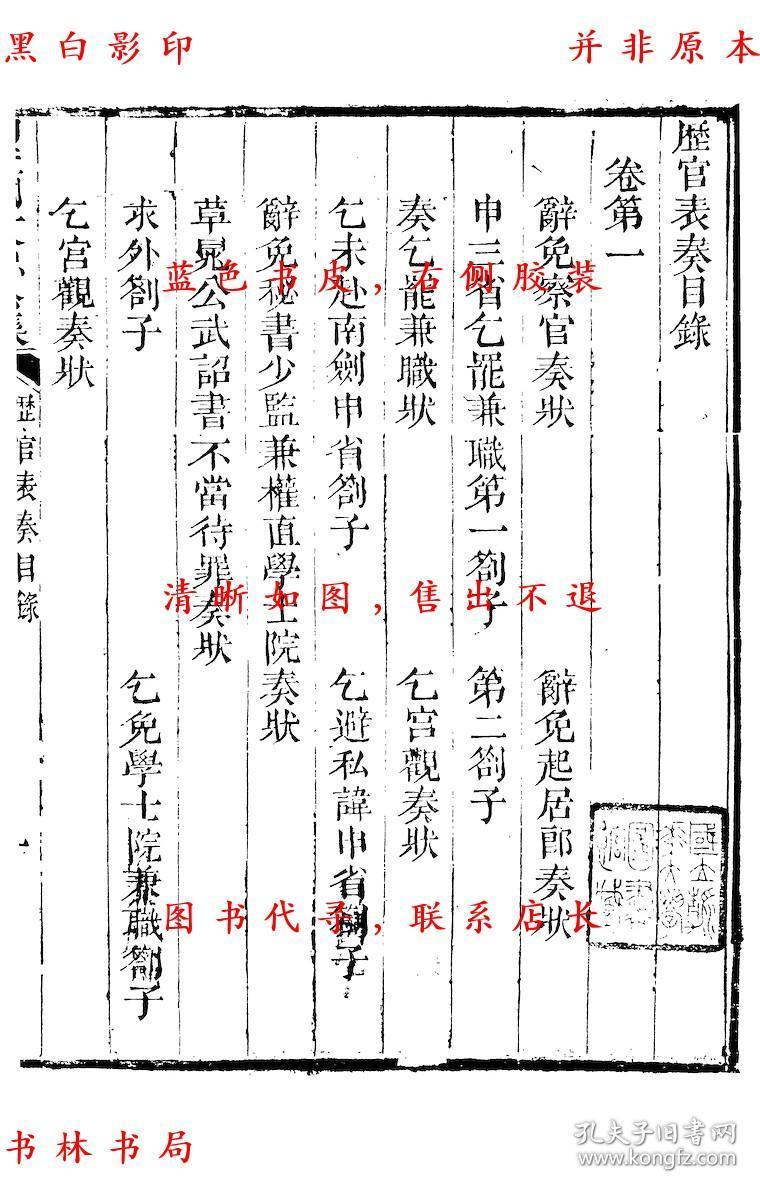 黑白影印
并非原本
歷官表奏目錄
卷第一
辭免察官奏狀 辭免起居郎奏狀
申三省乞罷兼職第一劄子 第二劄子
奏乞罷兼職狀 乞宮觀奏狀
乞未赴南劍申省劄子 乞避私諱申省劄子
辭免秘書少監兼權直學士院奏狀
草晁公武詔書不當待罪奏狀
求外劄子 乞免學士院兼職劄子
乞宮觀奏狀
歷官表奏目錄
一
蓝色书皮,右侧胶装
清晰如图,售出不退
图书代寻,联系店长
书林书局
孔夫子旧书网
www.kongfz.com